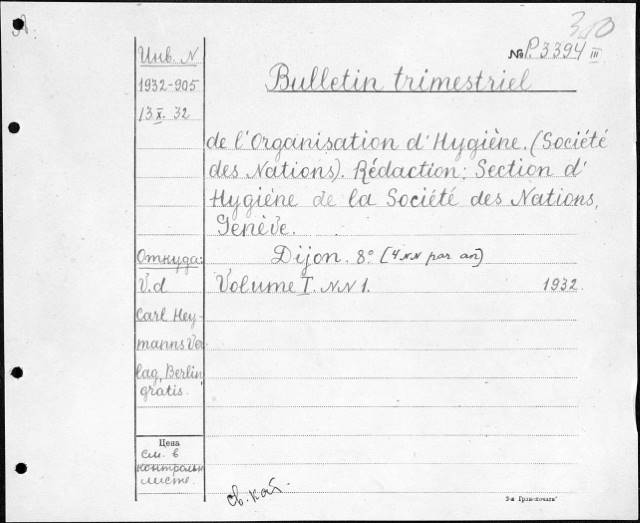 350
№ P.3394 III
Инв. N
1932-905
13 X. 32
Bulletin trimestriel
de l'Organisation d'Hygiène. (Société
des Nations). Rédaction: Section d'
Hygiène de la Société des Nations,
Genève.
Dijon. 8° [4 NN par an]
Volume I. NN 1. 1932.
Откуда:
V.d
Carl Hey-
manns Ver
lag, Berlin,
gratis.
Цена
см. в
контрольн
листе.
св. кат.